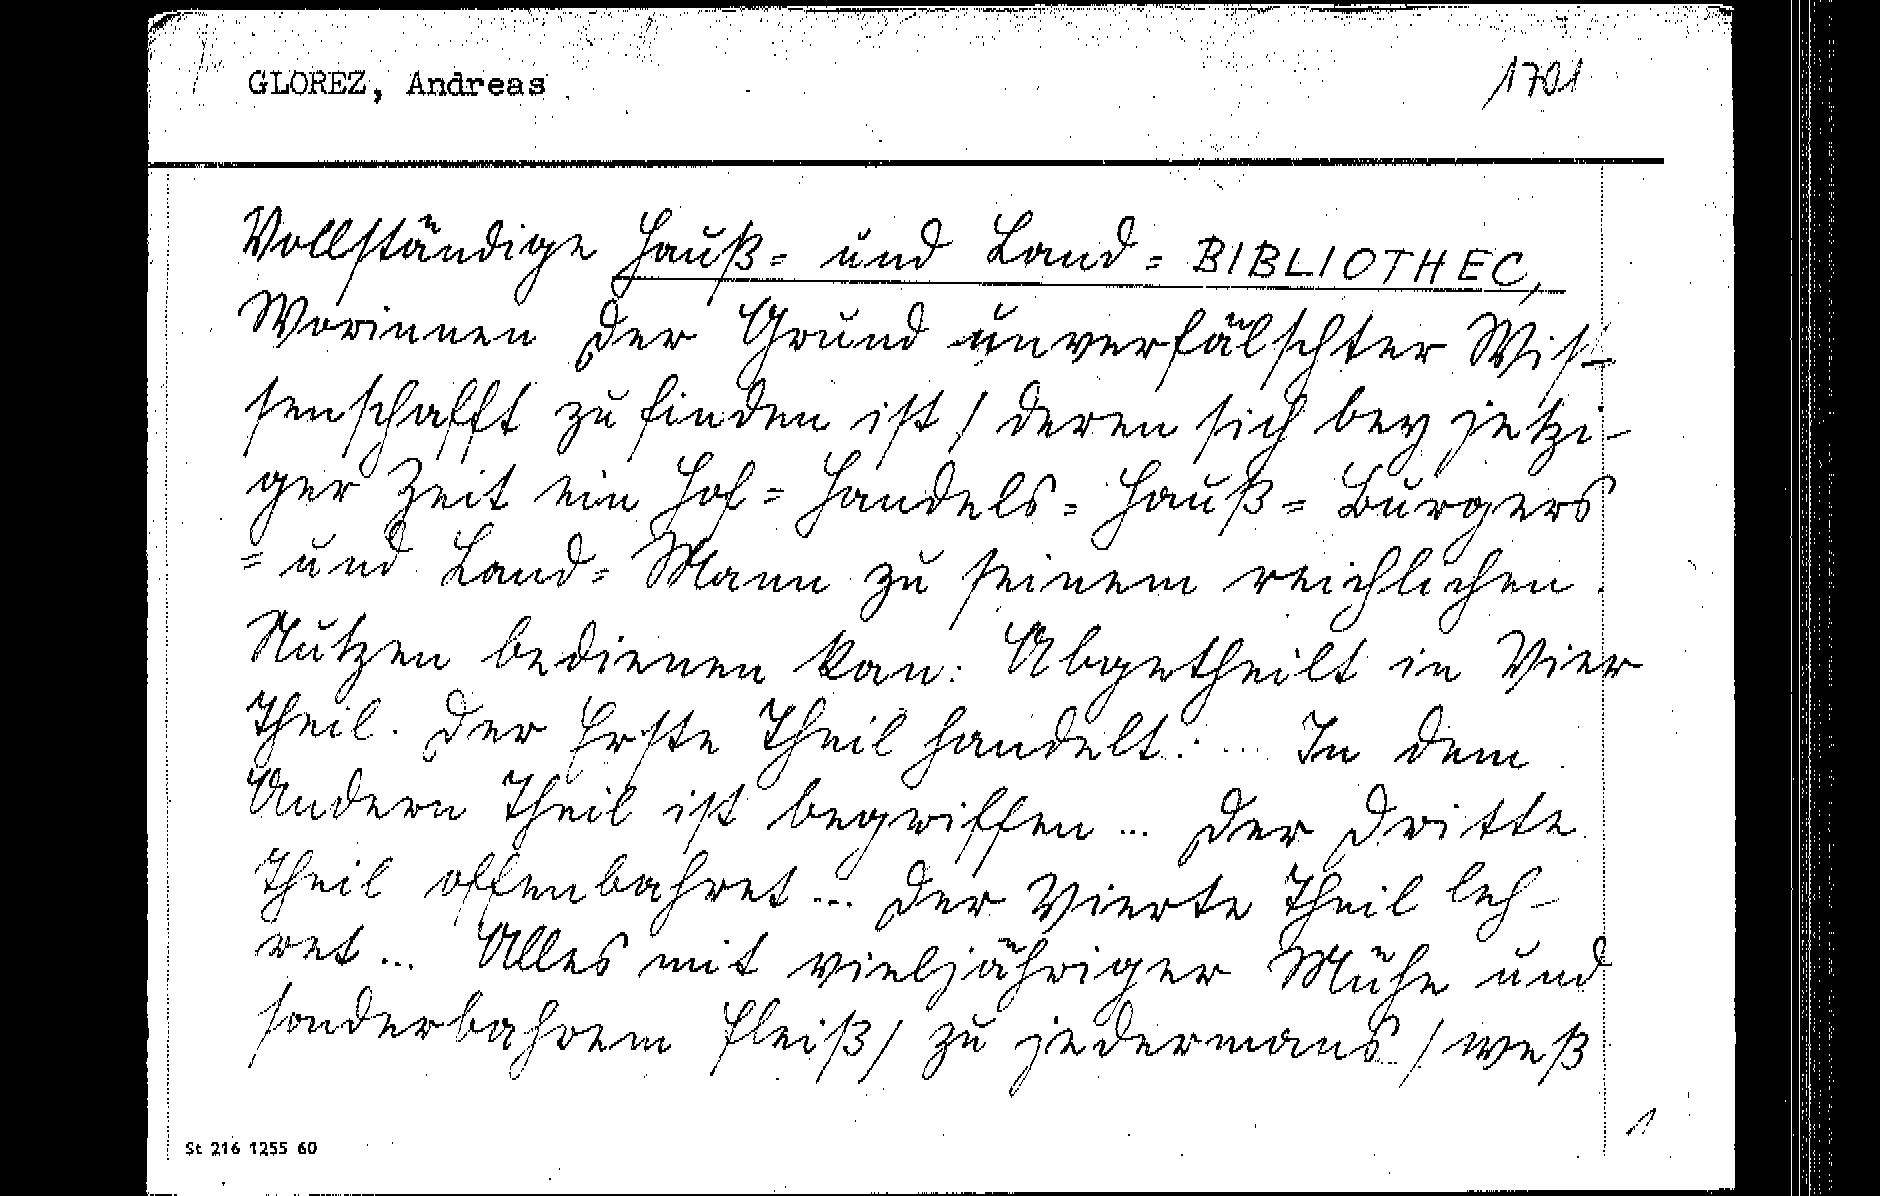 GLOREZ, Andreas 1701
Vollständige Hauß= und Land=BIBLIOTHEC,
Worinnen der Grund unverfälschter Wis-
senschafft zu finden ist / deren sich bey jetzi-
ger Zeit ein Hof= Handels= Hauß= Burgers
= und Land= Mann zu seinem reichlichen
Nutzen bedienen kan: Abgetheilt in Vier
Theil. Der Erste Theil handelt: ... In dem
Andern Theil ist begriffen ... Der Dritte
Theil offenbahret ... Der Vierte Theil leh-
ret ... Alles mit vieljähriger Mühe und
sonderbahrem Fleiß / zu jedermans / weß
St 216 1255 60
1